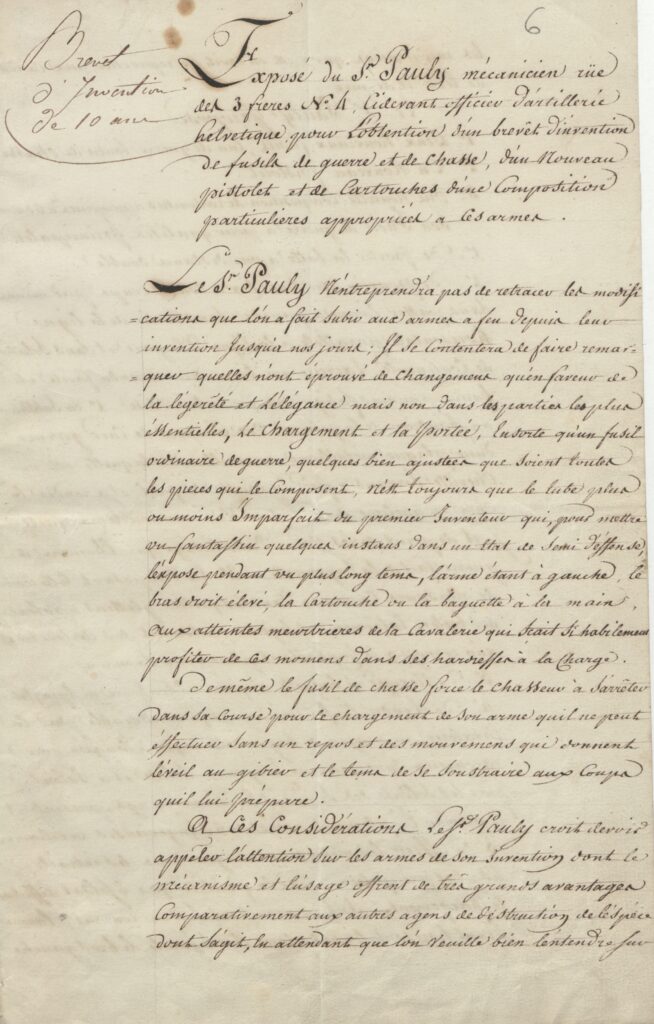 6
Brevet
d'Invention
de 10 ans
Exposé du Sr. Pauly mécanicien rüe
des 3 freres No. 4, Cidevant officier d'artillerie
helvetique pour L'obtention d'un brevêt d'invention
de fusils de guerre et de chasse, d'un Nouveau
pistolet et de Cartouches d'une Composition
particulieres appropriées a ces armes.
Le Sr. Pauly N'entreprendra pas de retracer les modifi
=cations que l'on a fait Subir aux armes a feu depuis leur
invention Jusqu'a nos jours; Il se Contentera de faire remar-
=quer quelles n'ont éprouvé de changemens qu'en faveur de
la légerêté et L'élégance mais non dans les parties les plus
éssentielles, Le Chargement et la Portée, Ensorte qu'un fusil
ordinaire de guerre, quelques bien ajustées que soient toutes
les pieces qui le Composent, N'ést toujours que le tube plus
ou moins Imparfait du premier Inventeur qui, pour mettre
un fantassin quelques instans dans un Etat de Semi d'éffense,
l'expose pendant un plus long tems, l'arme étant à gauche, le
bras droit élevé, la Cartouche ou la baguette à la main,
aux atteintes meurtrieres de la Cavalerie qui Sçait Si habilement
profiter de ces momens dans ses hardiesses à la Charge.
De même le fusil de chasse force le chasseur à S'arrêter
dans sa course pour le chargement de son arme qu'il ne peut
éffectuer sans un repos et des mouvemens qui donnent
l'éveil au gibier et le tems de se soustraire aux Coups
qu'il lui prépare.
A Ces Considérations Le Sr. Pauly croit devoir
appéler l'attention sur les armes de son Invention dont le
mécanisme et l'usage offrent de três grands avantages
Comparativement aux autres agens de déstruction de l'éspèce
dont S'agit, En attendant que l'on Veuille bien l'entendre sur